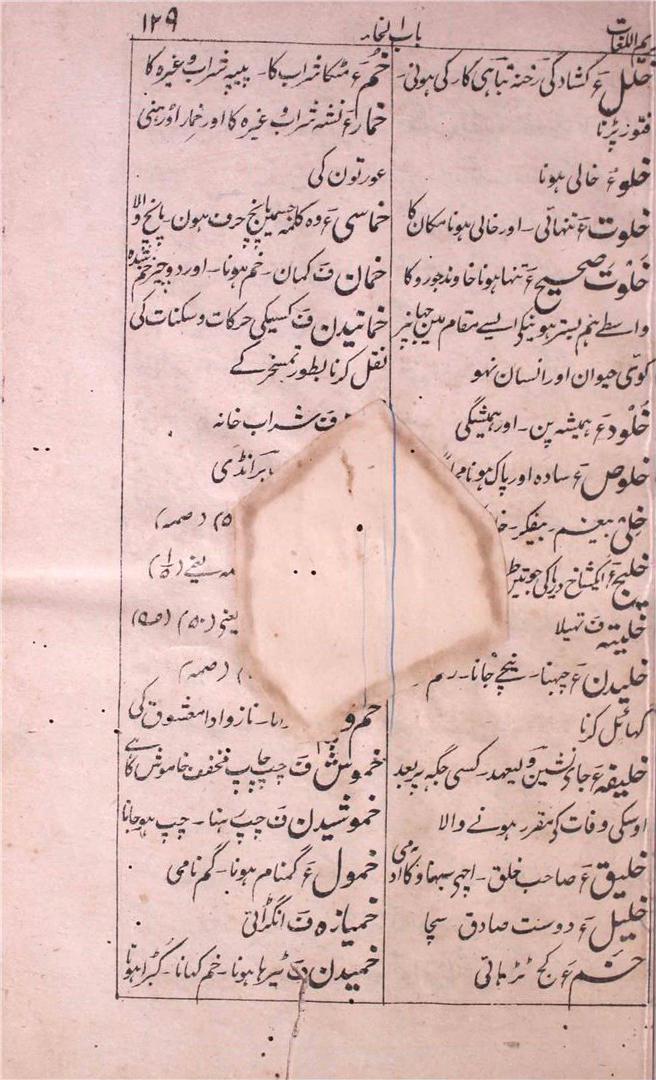 باب الخاء
۱۲۹
خلل ءَ کشادگی رخنہ تباہی کا۔ کی ہونی۔
فتوز پڑنا
خلوءَ خالی ہونا
خلوت ءَ تنہائی۔ اور خالی ہونا مکان کا
خلوت صحیح ءَ تنہا ہونا خاوند جورو کا
واسطے ہم بستر ہونیکی ایسے مقام مین جہانپر
کوئی حیوان اور انسان نہو
خلود ءَ ہمیشہ پن۔ اور ہمیشگی
خلوص ءَ سادہ اور پاک ہونا
بیغم۔ بیفکر۔
خلیج ءَ ایکشاخ دریا کی جو
خلیتہ فَ تہیلا
خلیدن ءَ چبہنا۔ نیچے جانا۔
گہائل کرنا
خلیفہ ءَ جای نشین ولیعہد۔ کسی جگہ پر بعد
اوسکی وفات کی مقرر ہونے والا
خلیق ءَ صاحب خلق۔ اچہی سبہاؤ کا آدمی
خلیل ءَ دوست صادق سچا
خم ءَ کج
خم ءَ مٹکا شراب کا۔ پیپہ شراب وغیرہ کا
خمار ءَ نشہ شراب وغیرہ کا اور خمار اوڑہنی
عورتون کی
خماسی ءَ وہ کلمہ جسمین پانچ حرف ہون۔ پانچ والا
خمان فَ کمان۔ خم ہونا۔ اور دو چیز خم شدہ
خمانیدن فَ کسیکی حرکات وسکنات کی
نقل کرنا بطور تمسخر کے
فَ شراب خانہ
برانڈی
یعنی (۵۰)
ناز وادا معشوق کی
خموش فَ چپ چاپ مخفف خاموش کا ہے
خموشیدن فَ چپ رہنا۔ چپ ہو جانا
خمول ءَ گمنام ہونا۔ گم نامی
خمیازہ فَ انگڑائی
خمیدن فَ ٹیڑہا ہونا۔ خم کہانا۔ کبڑا ہونا